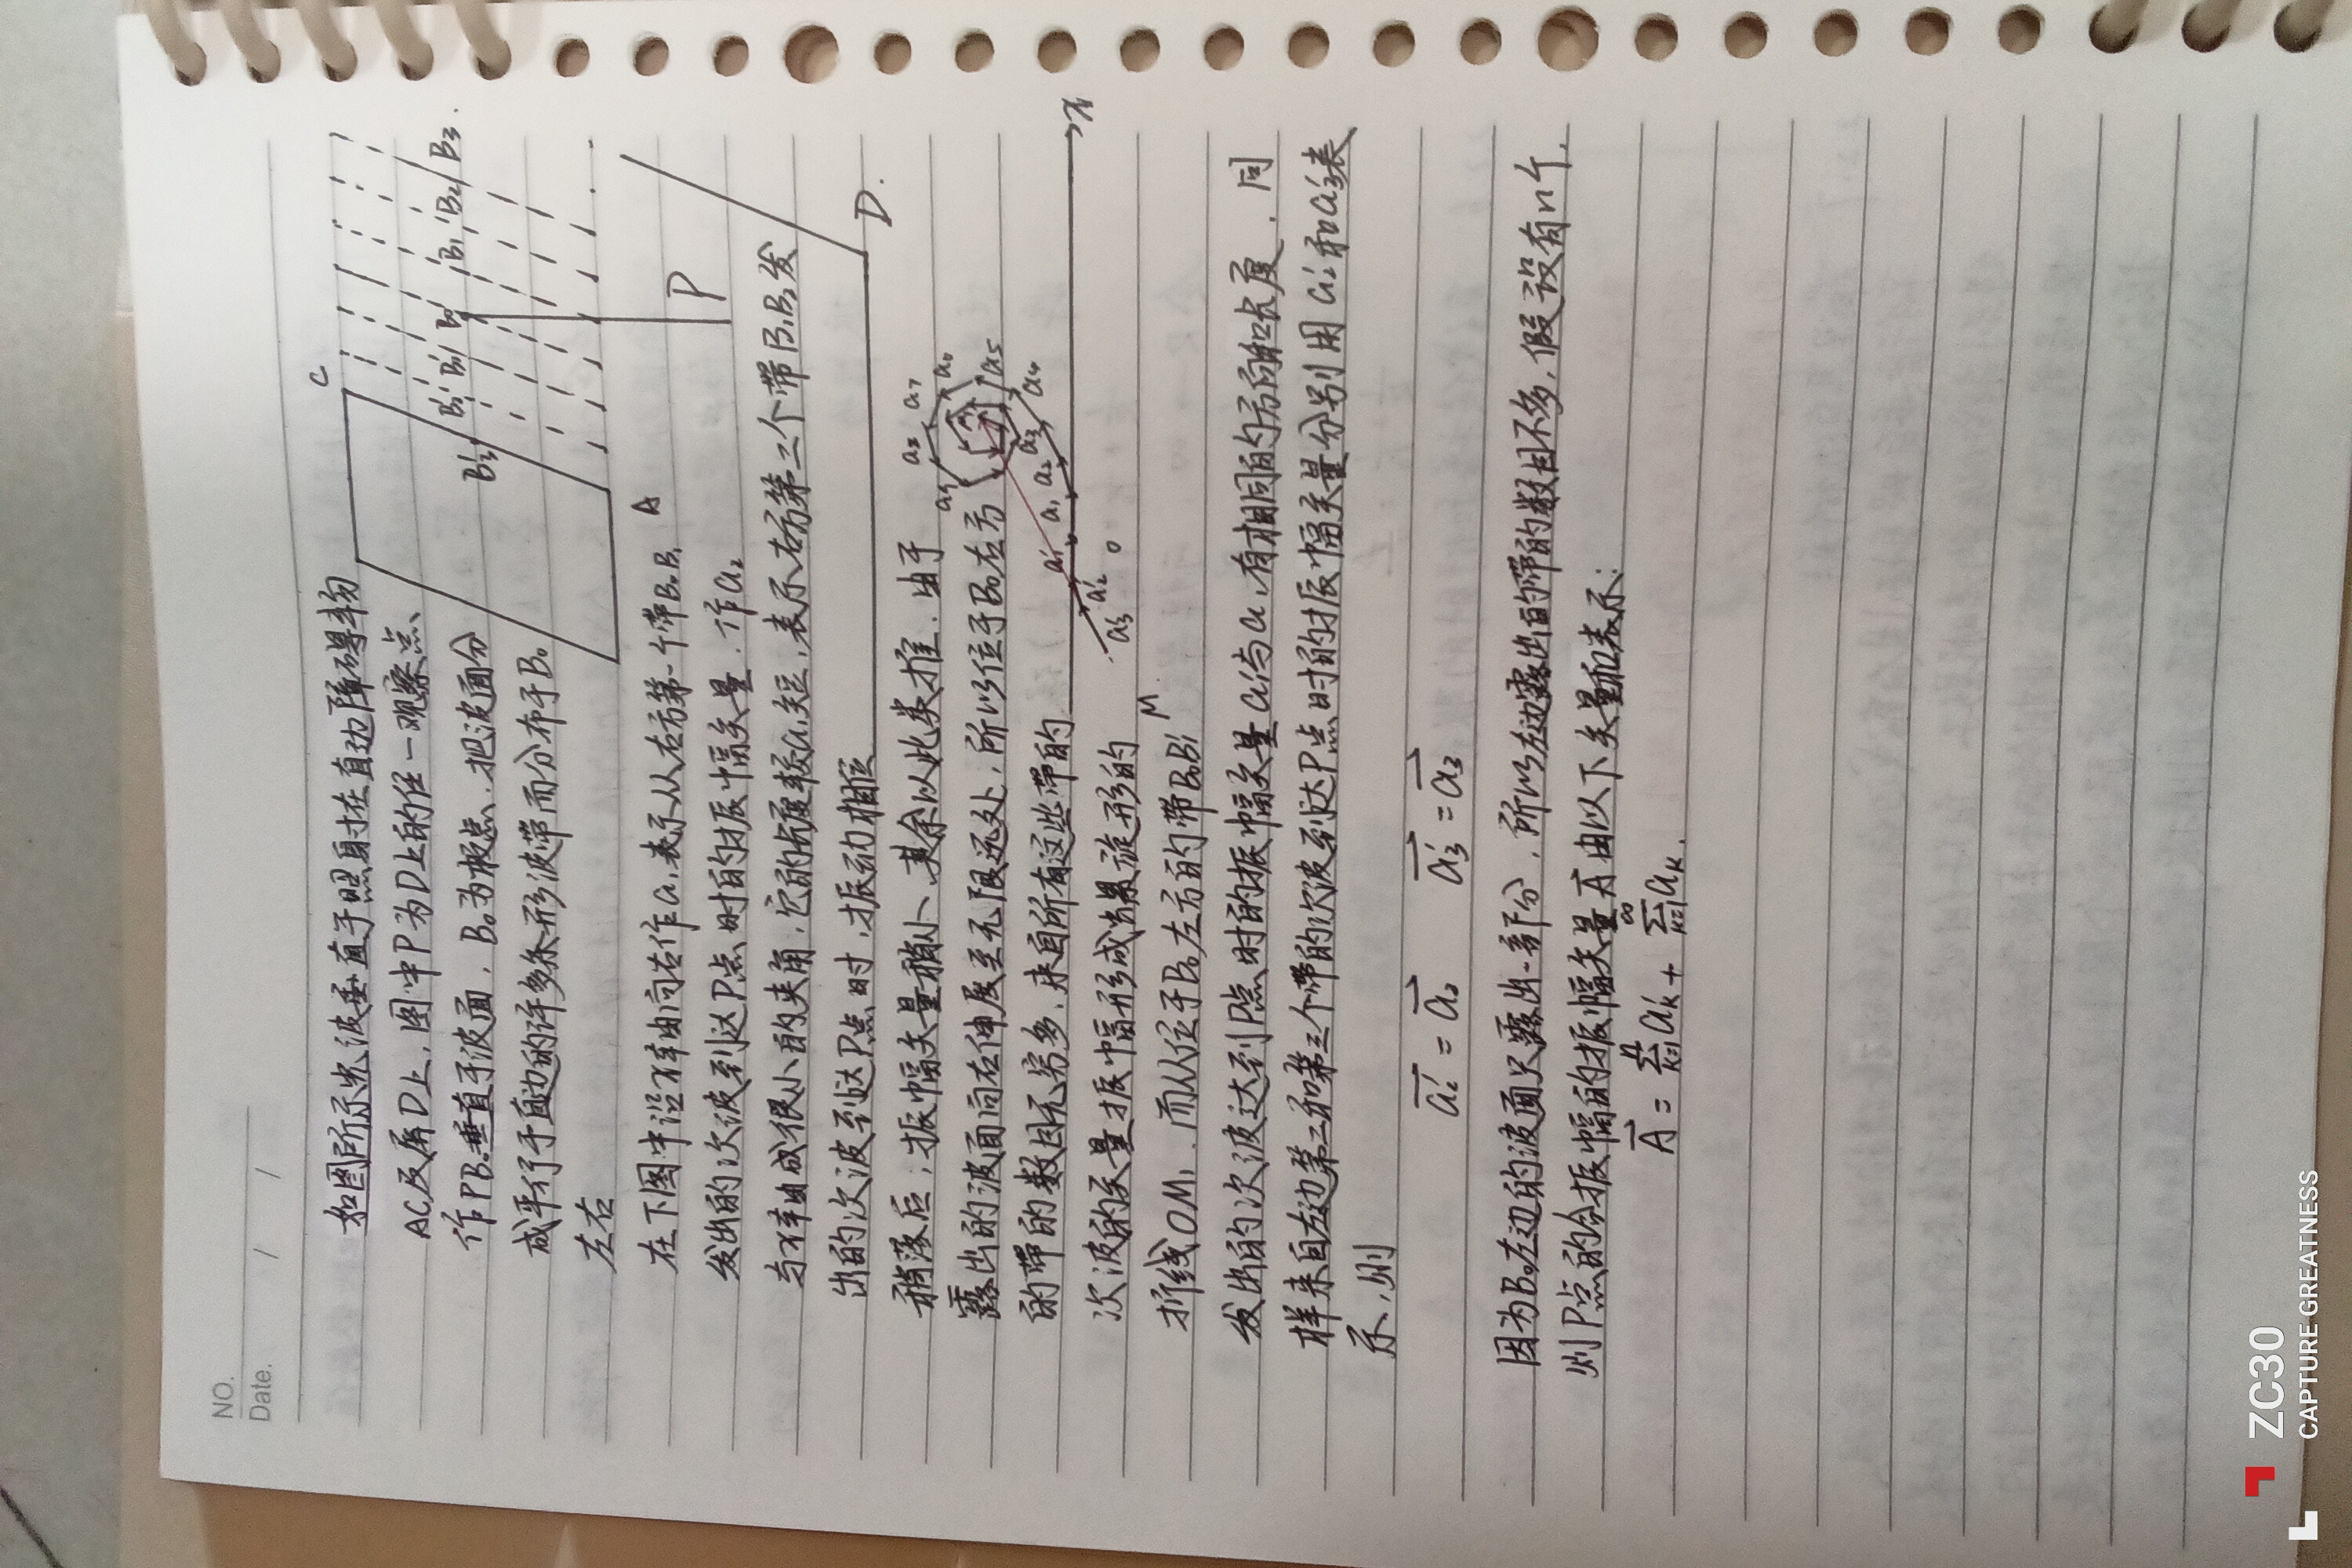 NO.
Date. / /
如图所示光波垂直于照射在直边障碍物
AC及屏D上,图中P为D上的任一观察点、
作PB。垂直于波面,B₀为极点,把波面分
成平行于直边的许多条形波带而分布于B。
左右
C
B₃' B₂' B₁' B₀ B₁ B₂ B₃
A
P
D
在下图中沿x轴向右作a₁表示从右方第一个带B₀B₁
发出的次波到达P点时的振幅矢量.作a₂
与x轴成很小的夹角,它的长度较a₁短,表示右方第二个带B₁B₂发
出的次波到达P点时,振动相位
稍落后,振幅矢量稍小、其余以此类推.由于
露出的波面向右伸展至无限远处,所以位于B₀右方
的带的数目无穷多,来自所有这些带的
次波的矢量振幅形成螺旋形的
折线OM₁.而从位于B₀左方的带B₀B₁'
发出的次波达到P点时的振幅矢量a₁'与a₁有相同的方向和长度,同
样来自左边第二和第三个带的次波到达P点时的振幅矢量分别用a₂'和a₃'表
示,则
a₃' a₂' a₁' a₁ a₂ a₃ a₄ a₅ a₆ a₇ a₈ a₉
O
M
x
a₂' = a₂ a₃' = a₃
因为B₀左边的波面只露出一部分,所以左边露出的带的数目不多,假设有n个.
则P点的合振幅的振幅矢量A由以下矢量和表示:
A = ∑ₖ₌₁ⁿ aₖ' + ∑ₖ₌₁^∞ aₖ.
ZC30
CAPTURE GREATNESS